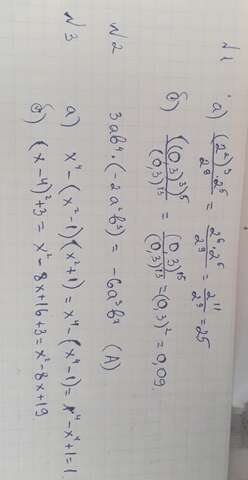 №1
а) (2²)³·2⁵/2⁹ = 2⁶·2⁵/2⁹ = 2¹¹/2⁹ = 25
б) ((0,3)³)⁵/(0,3)¹³ = (0,3)¹⁵/(0,3)¹³ = (0,3)² = 0,09.
№2 3ab⁴·(-2a²b³) = -6a³b⁷ (А)
№3 а) x⁴-(x²-1)(x²+1)=x⁴-(x⁴-1)=x⁴-x⁴+1=1.
б) (x-4)²+3=x²-8x+16+3=x²-8x+19